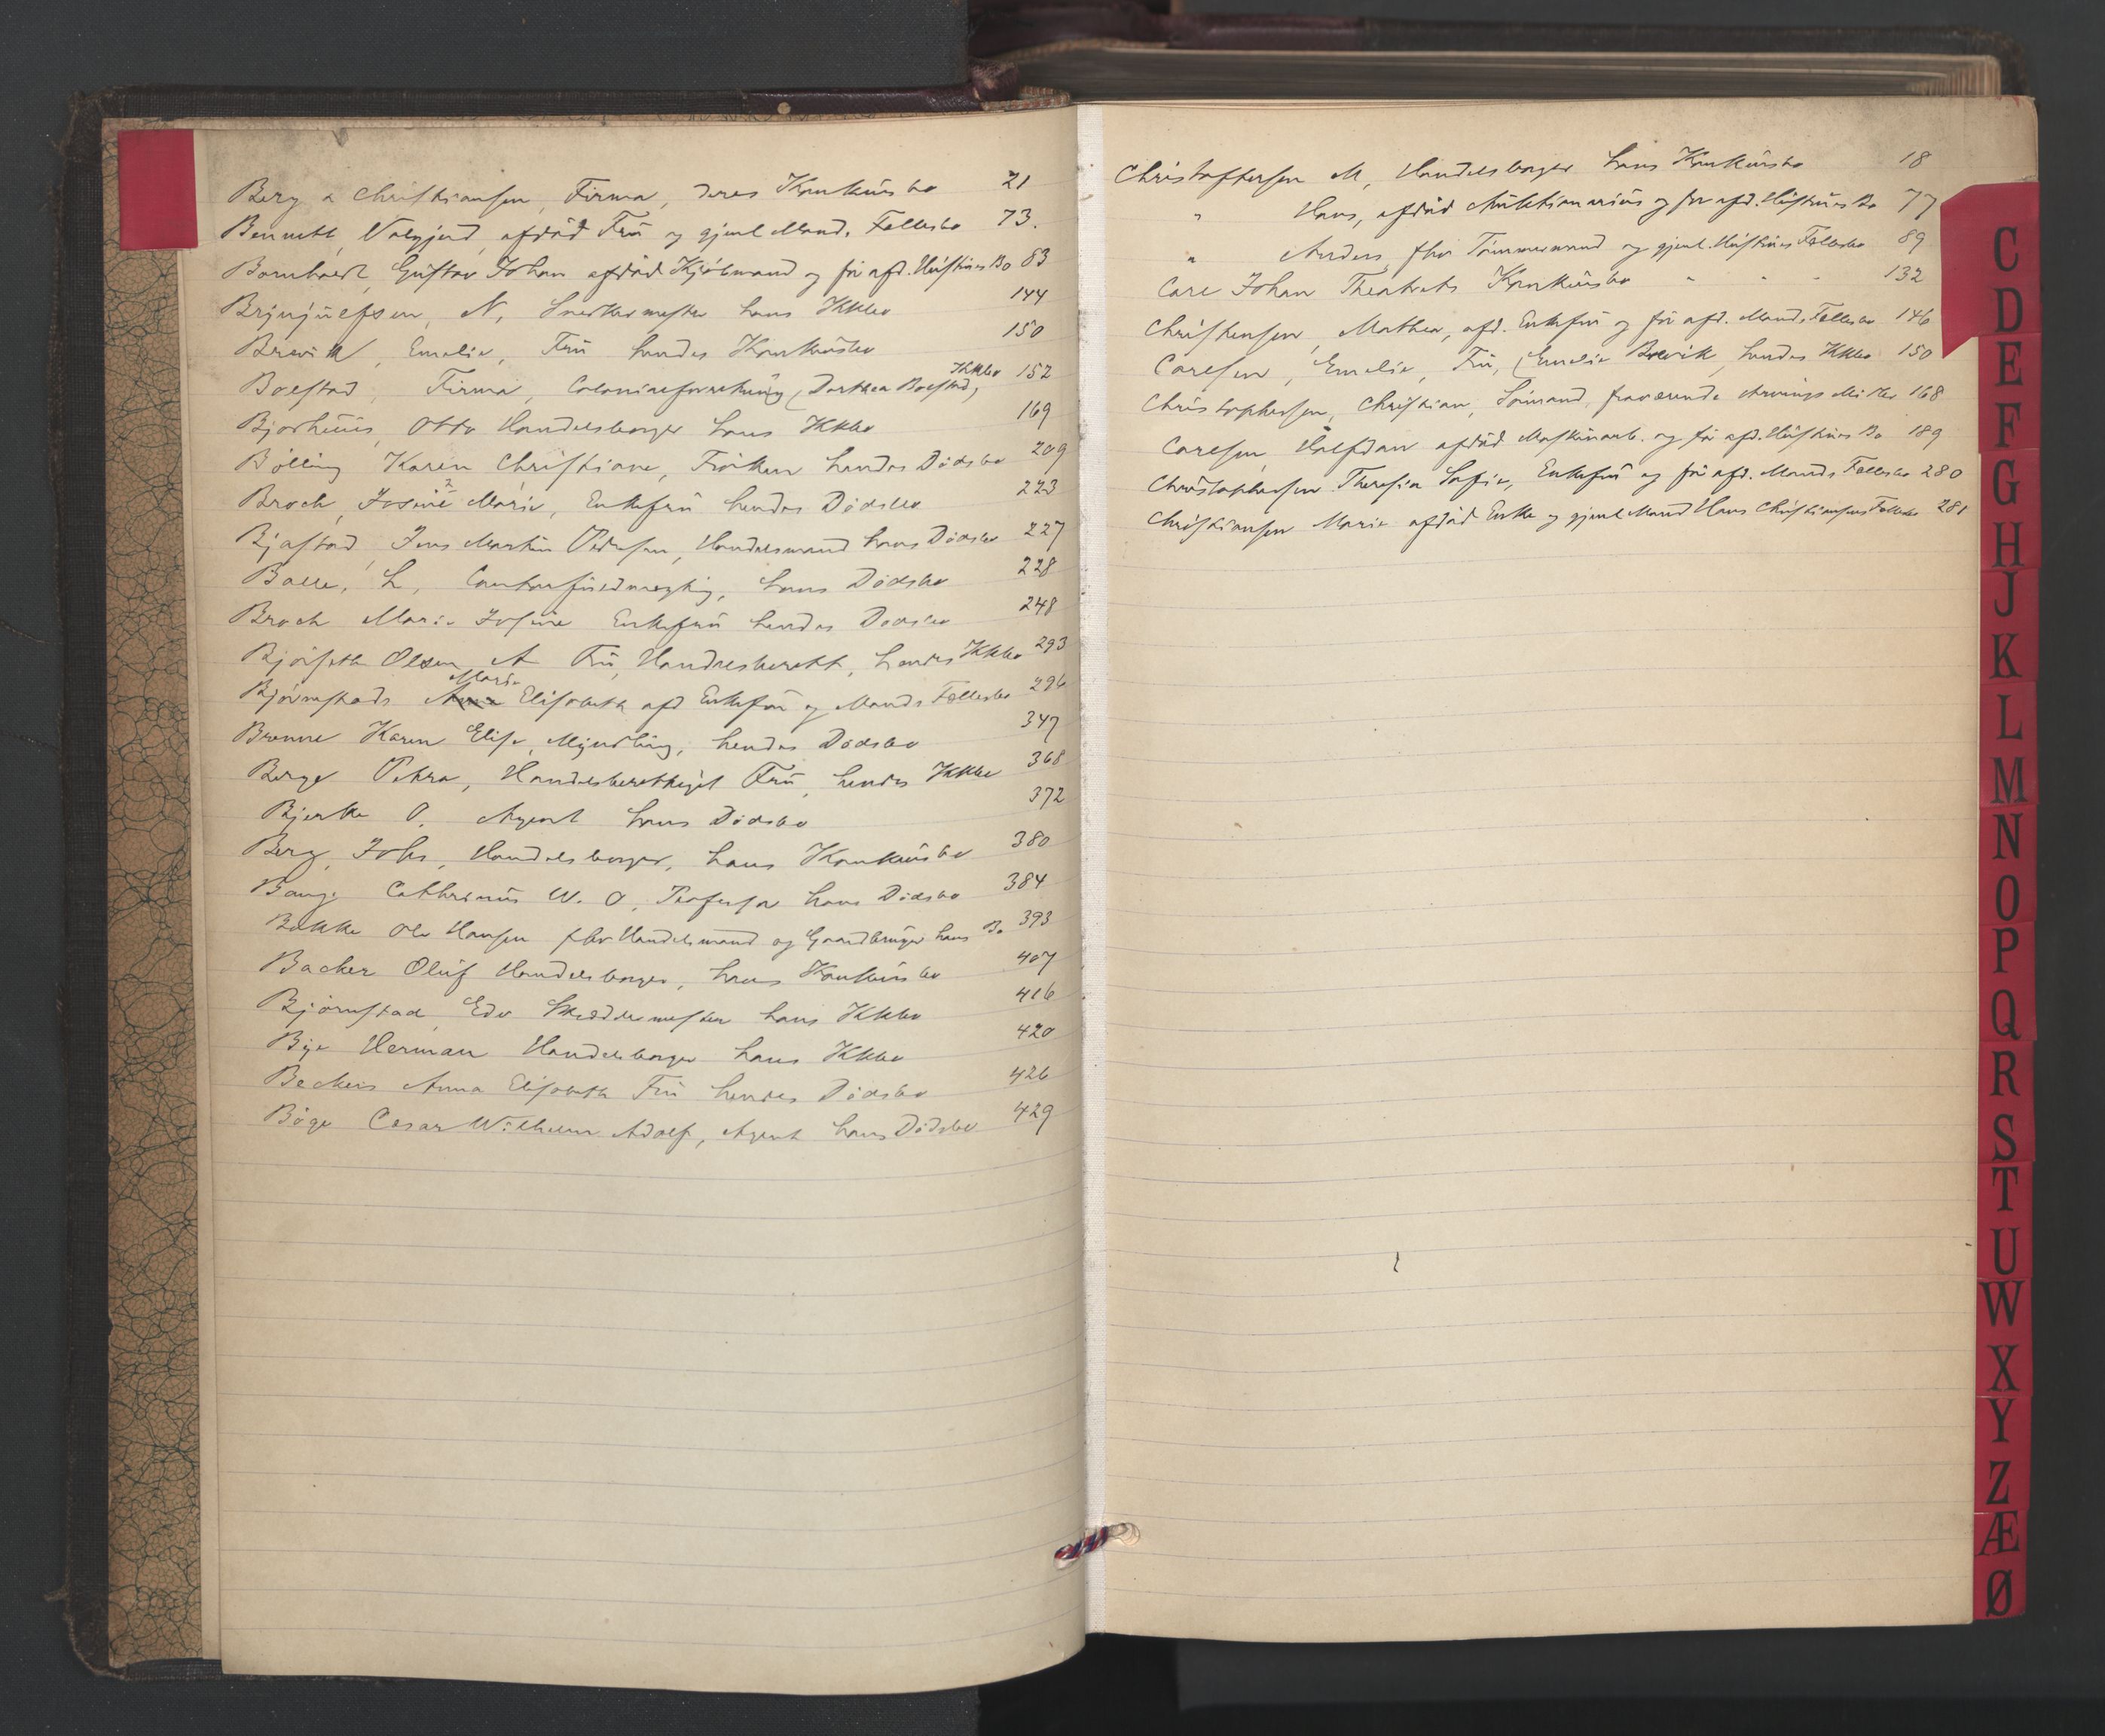 Berg & Christiansen, Firma, deres Konkursbo 21
Bennett, Valgjerd, afdød Frü og gjenl Mands Fællesbo 73.
Bornhoest, Güstav Johan afdød Kjøbmand og før afd. Hüstrües Bo 83
Brynjülfsen, N, Snedkermester hans Kkbo 144
Brevik, Emelie, Frü hendes Konkürsbo 150
Bolstad, Firma, Colonialforretning (Dorthea Bolstad) Kkbo 152
Bjorhüüs, Otto Handelsborger hans Kkbo 169
Bølling Karen Christiane, Frøken hendes Dødsbo 209
Broch, Josine 2 Marie, Enkefrü hendes Dødsbo 223
Bjastad, Jens Martin Pedersen, Handelsmand hans Dødsbo 227
Balle, L, Contorfüldmægtig, hans Dødsbo 228
Broch Marie Josine Enkefrü hendes Dødsbo 248
Bjørseth Olsen A Frü, Handelsberett, hendes Kkbo 293
Bjørnstads Anna Marie Elisabeth afd Enkefrü og Mands Fællesbo 296
Brenne Karen Elise, Myndling, hendes Dødsbo 347
Berge Petra, Handelsberettiget Frü, hendes Kkbo 368
Bjerke O. Agent hans Dødsbo 372
Berg, Johs, Handelsborger, hans Konkürsbo 380
Bang Cathrinus W. O, Professor hans Dødsbo 384
Bakke Ole Hansen fhv Handelsmand og Gaardbrüger hans Bo 393
Backer Olüf Handelsborger, hans Konkürsbo 407
Bjørnstad Edv Skræddermester hans Kkbo 416
Bye Herman Handelsborger hans Kkbo 420
Beckers Anna Elisabeth Frü hendes Dødsbo 426
Bøge Cæsar Wilhelm Adolf, Agent hans Dødsbo 429
Christoffersen M, Handelsborger hans Konkürsbo 18
" Hans, afdød Auktionarius og før afd. Hüstrües Bo 77
" Anders fhv Tømmermand og gjenl. Hüstrües Fællesbo 89
Carl Johan Theatrets Konkürsbo " " " 132
Christensen, Mathea, afd. Enkefrü og før afd. Mands Fællesbo 146
Carlsen, Emelie, Frü, (Emelie Brevik, hendes Kkbo 150
Christophersen, Christian, Sømand, fraværende Arvings Midler 168
Carlsen Halfdan afdød Maskinarb. og før afd. Hüstrües Bo 189
Christophersen Theresia Sofie, Enkefrü og før afd. Mands Fællesbo 280
Christiansen Marie afdød Enke og gjenl Mand Hans Christiansens Fællesbo 281
C
D
E
F
G
H
J
K
L
M
N
O
P
Q
R
S
T
U
W
X
Y
Z
Æ
Ø